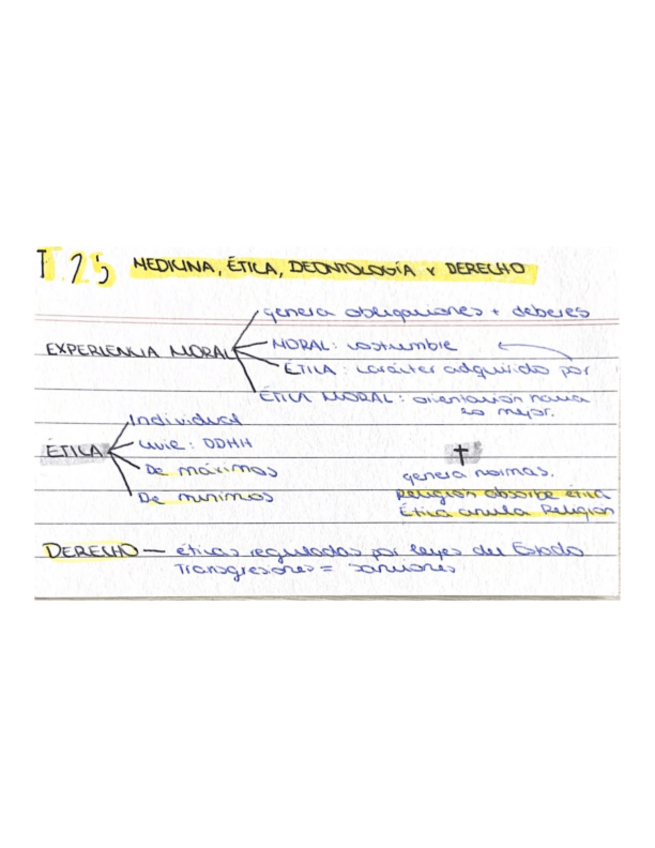 T.25 MEDICINA, ÉTICA, DEONTOLOGÍA Y DERECHO
genera obligaciones + deberes
EXPERIENCIA MORAL
MORAL: costumbre
ÉTICA: carácter adquirido por
ÉTICA MORAL: orientación hacia
lo mejor.
Individual
ÉTICA
civil: DDHH
De máximos
genera normas.
De mínimos
Religión absorbe ética
Ética anula Religión
DERECHO — éticas reguladas por leyes del Estado
Transgresiones = sanciones